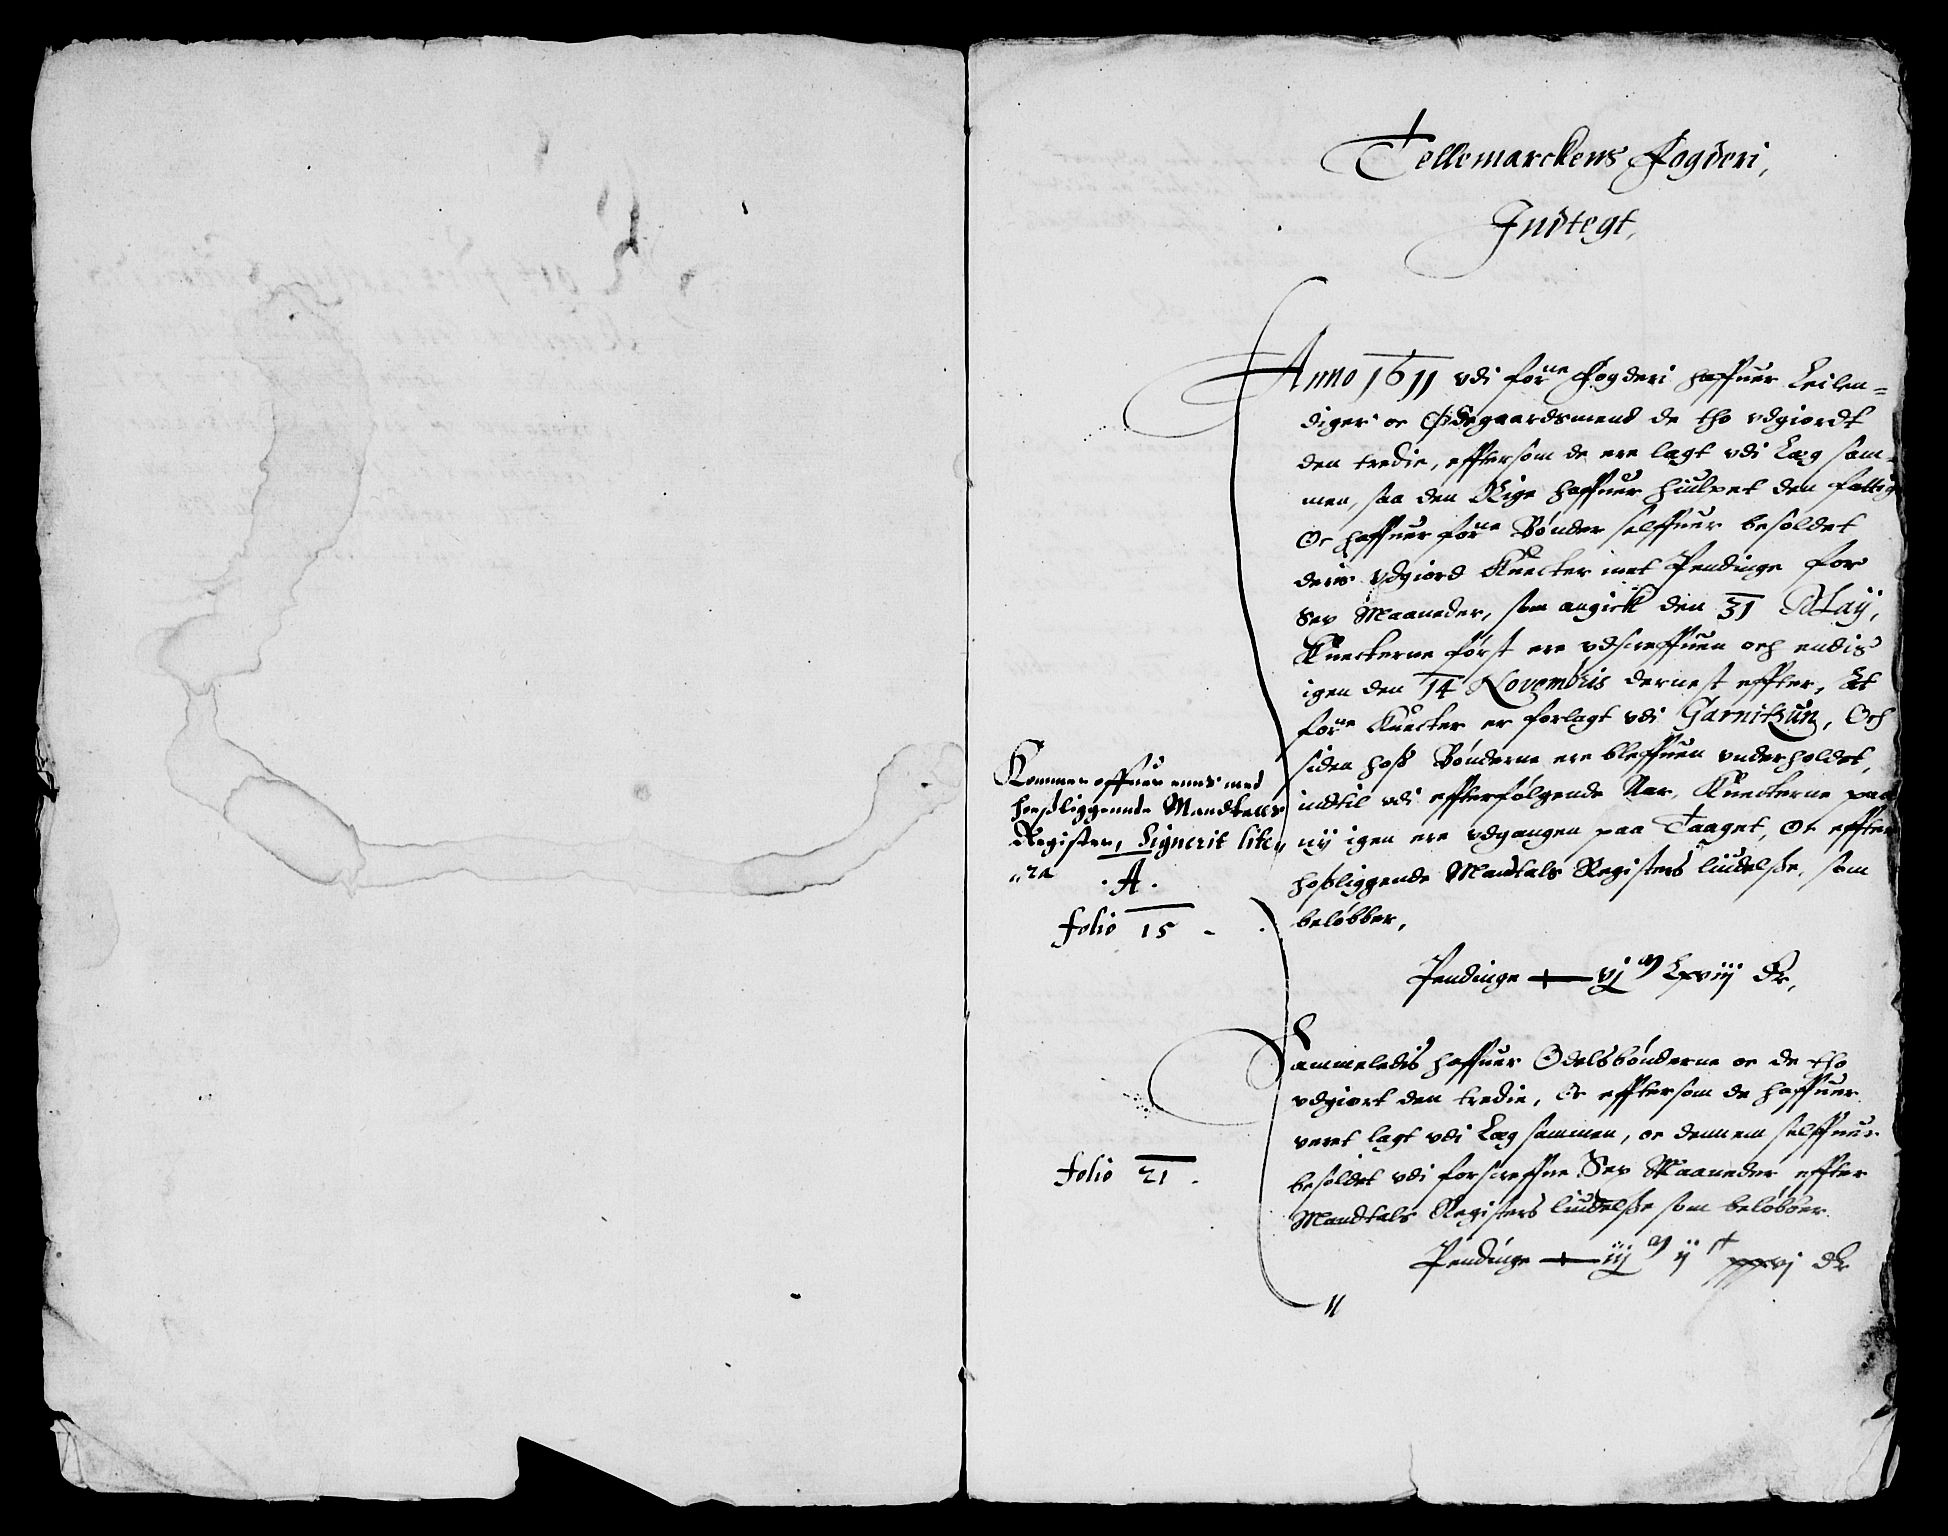 Tellemarckens Fogderi,
Indtegt,
Anno 1611 vdi for:ne Fogderi haffuer Leilen=
diger oc Ødegaardsmend de tho vdgiordt
den tredie, efftersom de ere lagt vdi Læg sam-
men, saa den Rige haffuer hiulpet den fattig
Oc haffuer for:ne Bønder selffuer besoldet
deris vdgiord Knecter met Pendinge for
Sex Maaneder, som angick den 31 Maij,
Knecterne først ere vdscreffuen och endis
igen den 14 Novembris dernest effter, At
for:ne Knecter er forlagt vdi Garnitzun, Och
siden hoss Bønderne ere bleffuen vnderholdet,
indtil vdi effterfølgende Aar, Knecterne paa
nij igen ere vdgangen paa Taaget, Oc effter
hossliggende Mandtals Registers liudelsse, som
beløbber,
Pendinge — vj m Lxviij dr,
Kommer offuer eens med
hossliggennde Mandtalls
Register, Signerit lite„
„ra
. A .
folio 15 -
Sammeledis haffuer Odelsbønderne oc de tho
vdgiort den tredie, Oc efftersom de haffuer
veret lagt vdi Læg sammen, oc dennem selffuer
besoldet vdi forscreffne Sex Maaneder effter
Mandtals Registers liudelsse som beløbber
folio 21 .
Pendinge — iij m ij c xxvj dr